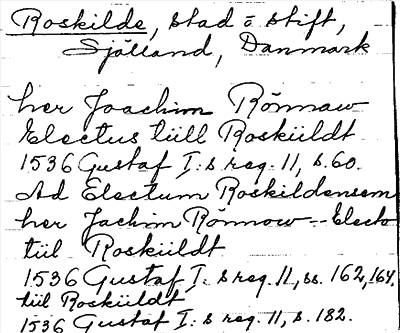 Roskilde, stad o stift,
Själland, Danmark
her Joachim Rönnaw
Electus tüll Rosküldt
1536 Gustaf I:s reg. 11, s. 60.
Ad Electum Roskildensem
her Jachim Rönnow - Electo
tül Rosküldt
1536 Gustaf I:s reg. 11, ss. 162, 164.
tül Rosküldt
1536 Gustaf I:s reg. 11, s. 182.